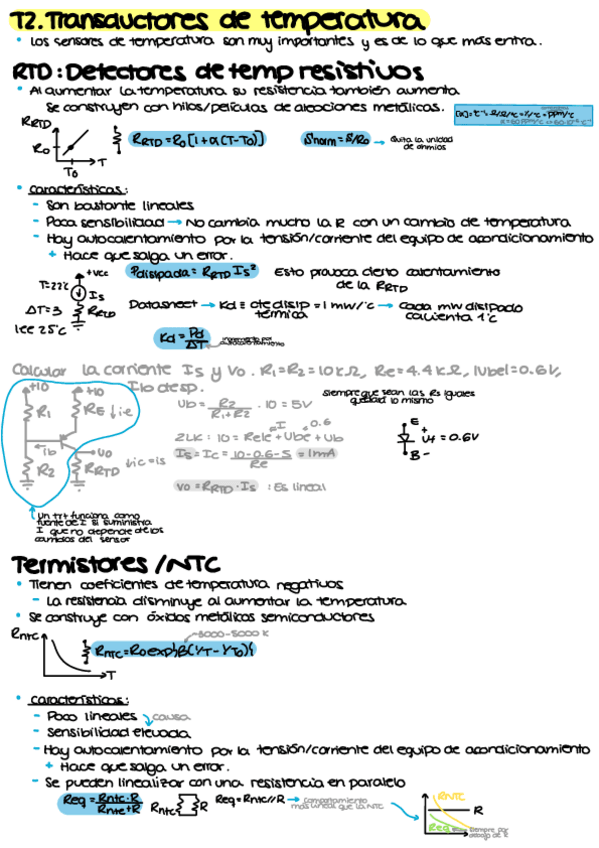 T2. Transductores de temperatura
• Los sensores de temperatura son muy importantes y es de lo que más entra.
RTD: Detectores de temp resistivos
• Al aumentar la temperatura su resistencia también aumenta
Se construyen con hilos/películas de aleaciones metálicas.
RRTD
R0
T0
T
RRTD = R0[1+α(T-T0)]
Snorm = S/R0 → Quita la unidad de ohmios
• Características:
- Son bastante lineales
- Poca sensibilidad → No cambia mucho la R con un cambio de temperatura
- Hay autocalentamiento por la tensión/corriente del equipo de acondicionamiento
+ Hace que salga un error.
T=22°C
+Vcc
Is
ΔT=3
RRTD
lee 25°C
Pdisipada = RRTD Is²
Esto provoca cierto calentamiento de la RRTD
Datasheet → Kd = cte disip térmica = 1 mW/°C → Cada mW disipado calienta 1°C
Kd = Pd/ΔT
incremento por autocalentamiento
Calcular la corriente Is y Vo. R1=R2=10kΩ, Re=4.4kΩ, |Vbe|=0.6V,
Ib desp.
+10
+10
R1
RE
↓ie
ib
Vo
R2
RRTD
↓ic=is
Ub = R2/(R1+R2) · 10 = 5V
siempre que sean las Rs iguales quedará lo mismo
2LK: 10 = ReIe + Ube + Ub
I
0.6
Is = Ic = (10-0.6-5)/Re = 1mA
Vo = RRTD · Is : Es lineal
E
Uf = 0.6V
B -
Un trt funciona como fuente de I si suministra I que no depende de los cambios del sensor
Termistores /NTC
• Tienen coeficientes de temperatura negativos
- La resistencia disminuye al aumentar la temperatura
• Se construye con óxidos metálicos semiconductores
RNTC
T
3000-5000 K
RNTC = R0 exp{B(1/T - 1/T0)}
• Características:
- Poco lineales
causa
- Sensibilidad elevada
- Hay autocalentamiento por la tensión/corriente del equipo de acondicionamiento
+ Hace que salga un error.
- Se pueden linealizar con una resistencia en paralelo
Req = Rntc·R/(Rntc+R)
Rntc
R
Req = Rntc//R → comportamiento más lineal que la NTC
RNTC
R
Req
siempre por debajo de R